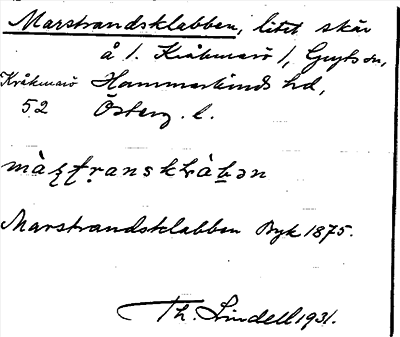 Marstrandsklabben, litet skär
å 1. Kråkmarö 1, Gryts sn,
Kråkmarö Hammarkinds hd,
52 Österg. l.
Marstrandsklabben Byk 1875.
Th. Lindell 1931.